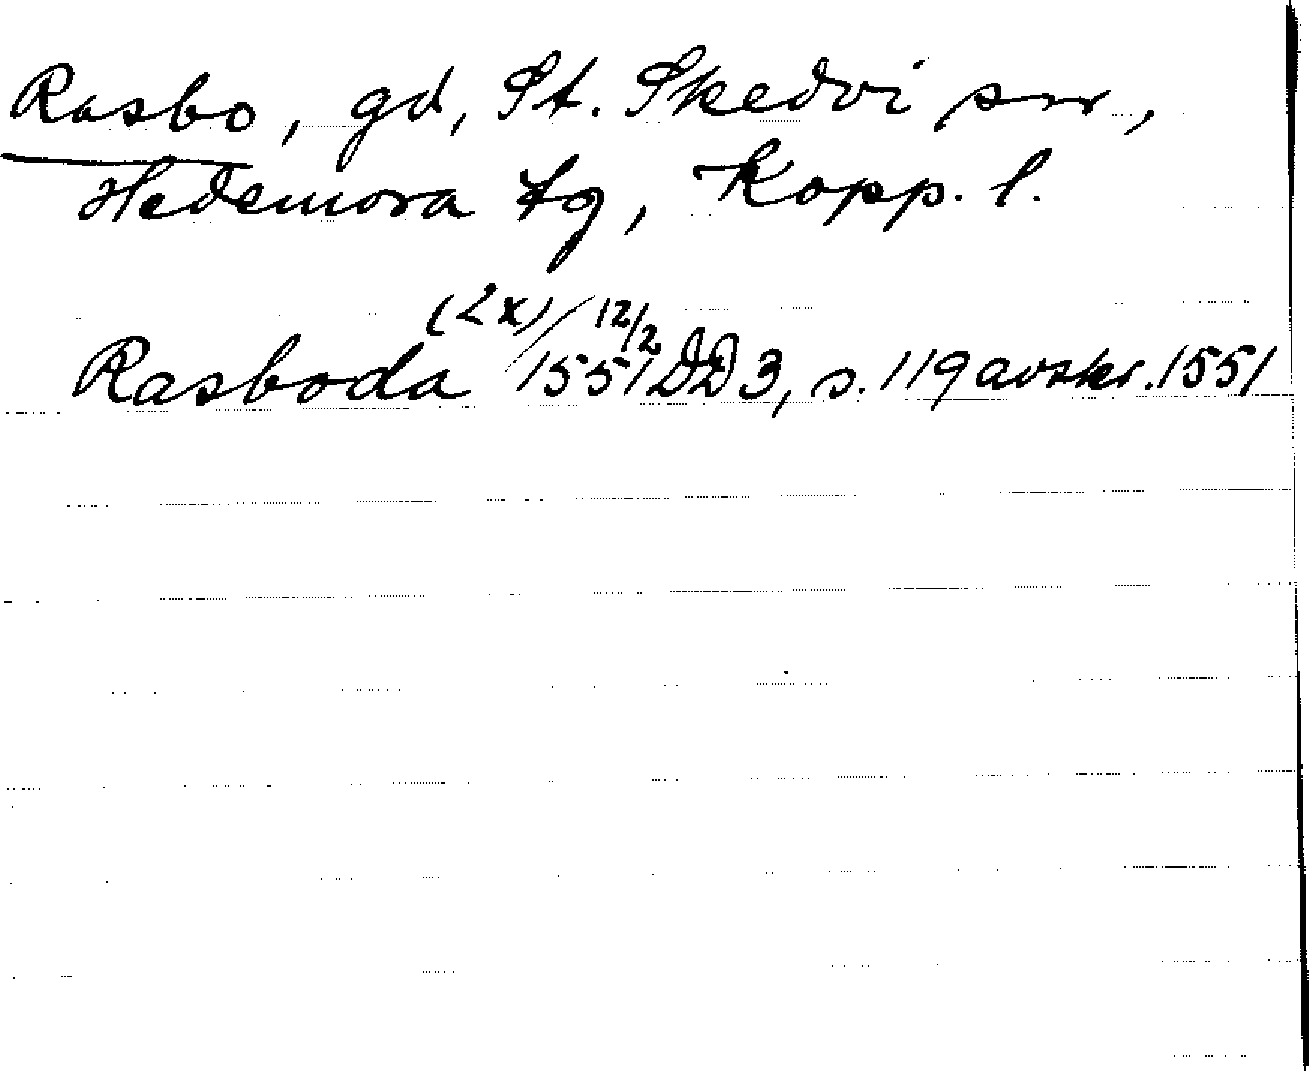 Rasbo, gd, St. Skedvi sn,
Hedemora tg, Kopp. l.
(2x) 12/2
Rasboda 1551 DD 3, s. 119 avskr. 1551